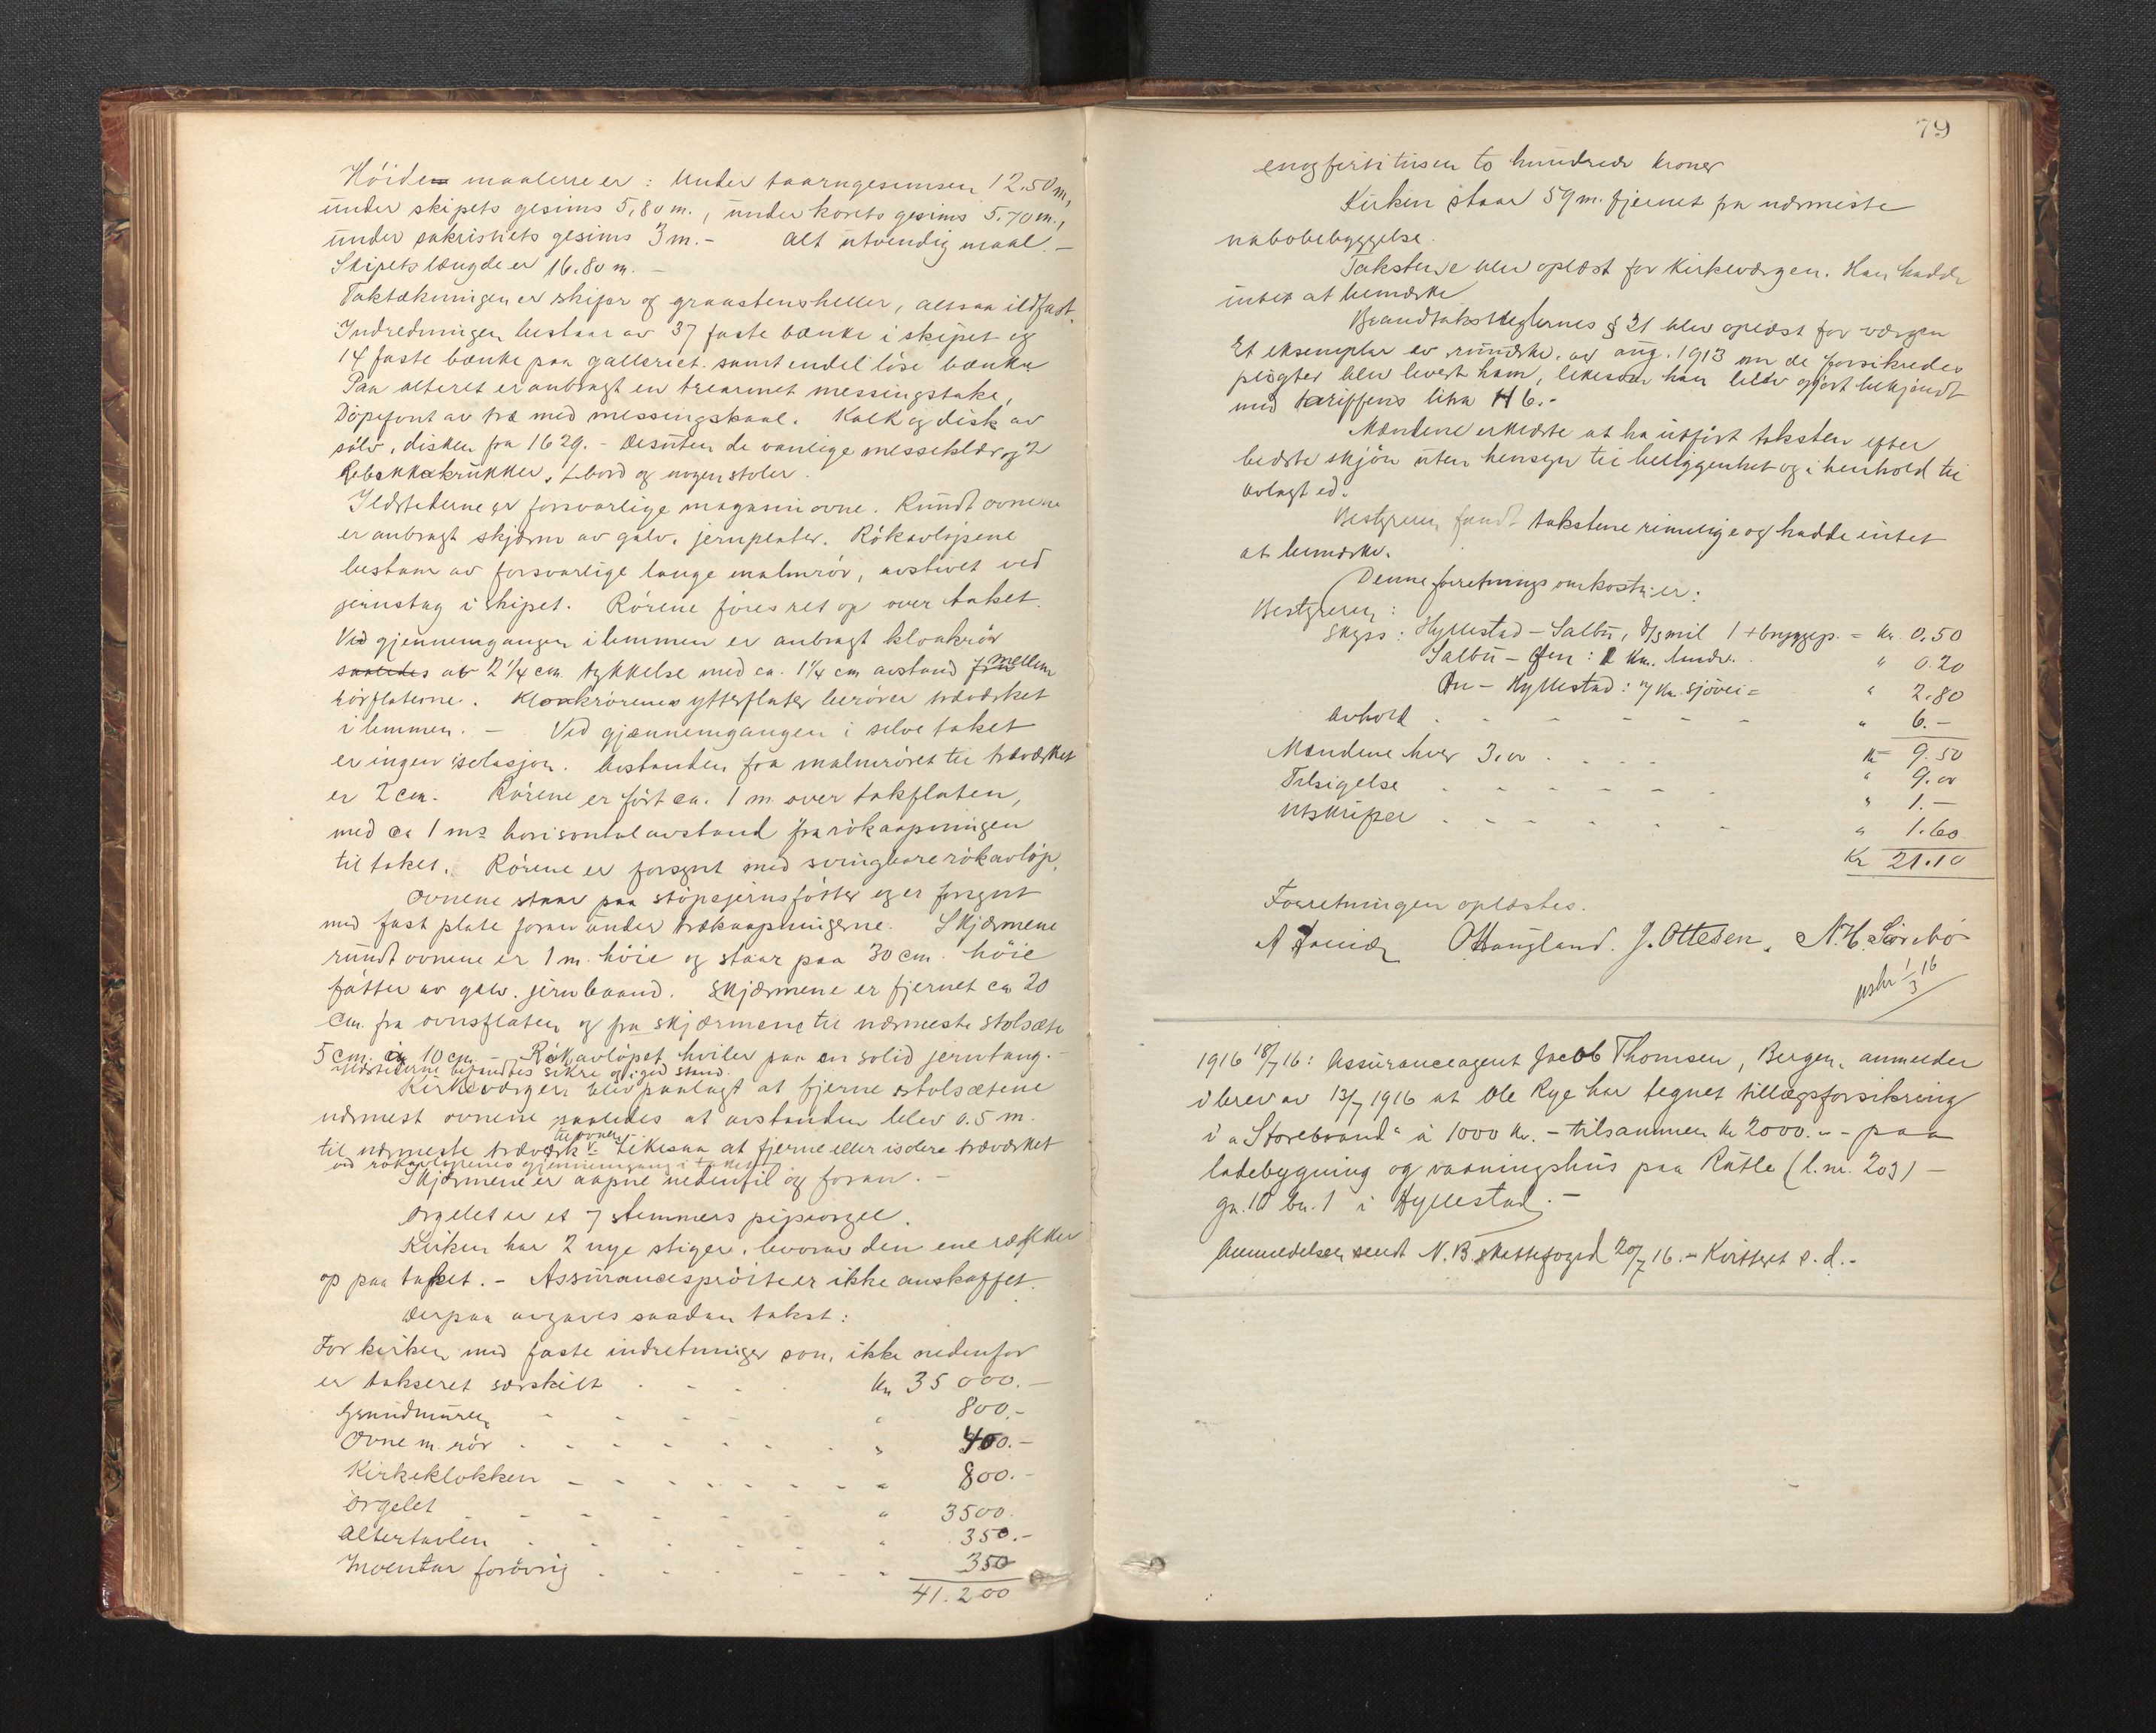 Höiden maalene er: Under taarngesimsen 12.50 m,
under skipets gesims 5,80 m., under korets gesims 5.70 m.,
under sakristiets gesims 3 m. - Alt utvendig maal. -
Skipets længde er 16.80 m. -
Taktækningen er skifer og graastensheller, altsaa ildfast.
Indredningen bestaar av 37 faste bænke i skipet og
14 faste bænke paa galleriet samt endel löse bænke
Paa alteret er anbragt en trearmet messingstake,
Döpefont av træ med messingskaal. Kalk og disk av
sölv, disken fra 1629. - Desuten de vanlige messeklær og 2
Rebekkakrukker, 1 bord og nogen stoler.
Ildstederne er forsvarlige magasinovne. Rundt ovnene
er anbragt skjærm av galv. jernplater. Rökavlöpene
bestaar av forsvarlige lange malmrör, avstivet ved
jernstag i skipet. Rörene föres ret op over taket.
Ved gjennemgangen i lemmen er anbragt kloakrör
saaledes av 2 1/4 cm. tykkelse med ca. 1 1/4 cm avstand fra mellem
rörflaterne. Kloakrörenes ytterflater berörer træværket
i lemmen. - Ved gjennemgangen i selve taket
er ingen isolasjon. Avstanden fra malmröret til træverket
er 2 cm. Rörene er fört ca. 1 m. over takflaten,
med ca 1 ms horisontal avstand fra rökaapningen
til taket. Rörene er forsynt med svingbare rökavlöp.
Ovnene staar paa stöpejernsfötter og er forsynt
med fast plate foran under trækaapningerne. Skjærmene
rundt ovnene er 1 m. höie og staar paa 30 cm. höie
fötter av galv. jernbaand. Skjærmene er fjernet ca 20
cm. fra ovnsflaten og fra skjærmene til nærmeste stolsæte
5 cm. à 10 cm. - Rökavlöpet hviler paa en solid jernstang. -
Ildstederne befandtes sikre og i god stand.
Kirkeværgen blev paalagt at fjerne stolsætene
nærmest ovnene saaledes at avstanden blev 0.5 m.
til ovnen
til nærmeste træverk v. Likesaa at fjerne eller isolere træværket
ved rökavlöpenes gjennemgang i taket
Skjærmene er aapne nedentil og foran. -
Orgelet er et 7 stemmers pipeorgel.
Kirken har 2 nye stiger, hvorav den ene rækker
op paa taket. - Assuransespröite er ikke anskaffet.
Derpaa avgaves saadan takst:
For kirken med faste indretninger som ikke nedenfor
er takseret særskilt . . . . kr 35000. -
Grundmuren - - - - " 800. -
Ovne m. rör . - - - - - " 400. -
Kirkeklokken - - - - - - " 800. -
Orgelet - - - - - - " 3500.
Altertavlen - - - - - " 350. -
Inventar forövrig - - - - - 350
41.200
79
enogfirti tusen to hundrede kroner
Kirken staar 59 m. fjernet fra nærmeste
nabobebyggelse.
Taksterne blev oplæst for Kirkeværgen. Han hadde
intet at bemerke.
Brandtakstreglernes § 21 blev oplæst for værgen
Et eksemplar av rundskr. av aug. 1913 om de forsikredes
plegter blev levert ham, likesom han blev gjort bekjendt
med tariffens litra H 6. -
Mændene erklærte at ha utfört taksten efter
bedste skjön uten hensyn til beliggenhet og i henhold til
avlagt ed.
Bestyreren fandt takstene rimelige og hadde intet
at bemerke.
Denne forretnings omkostn. er:
Bestyreren:
Skyss: Hyllestad - Salbu, 1/3 mil 1 + bryggep. = kr. 0.50
Salbu - Øen: 1 km. landv. . " 0.20
Øen - Hyllestad: 7 km. sjövei = " 2.80
Avhold . - - - - - - " 6. -
Kr 9.50
Mændene hver 3.00 . . . . " 9.00
Tilsigelse - - - - - - " 1. -
Utskrifter . - - - - - " 1.60
Kr 21.10
Forretningen oplæstes.
O Haugland. J. Ottesen. N. H. Sörebö
uskr 1/3 16
1916 18/7 16: Assuranceagent Jacob Thomsen, Bergen, anmelder
i brev av 13/7 1916 at Ole Rye har tegnet tillægsforsikring
i "Storebrand" à 1000 kr. - tilsammen kr 2000. - - paa
ladebygning og vaaningshus paa Rutle (l.nr. 203) -
gn. 10 bn. 1 i Hyllestad. -
Anmeldelsen sendt N. B. skattefoged 20/7 16. - Kvittert s. d. -